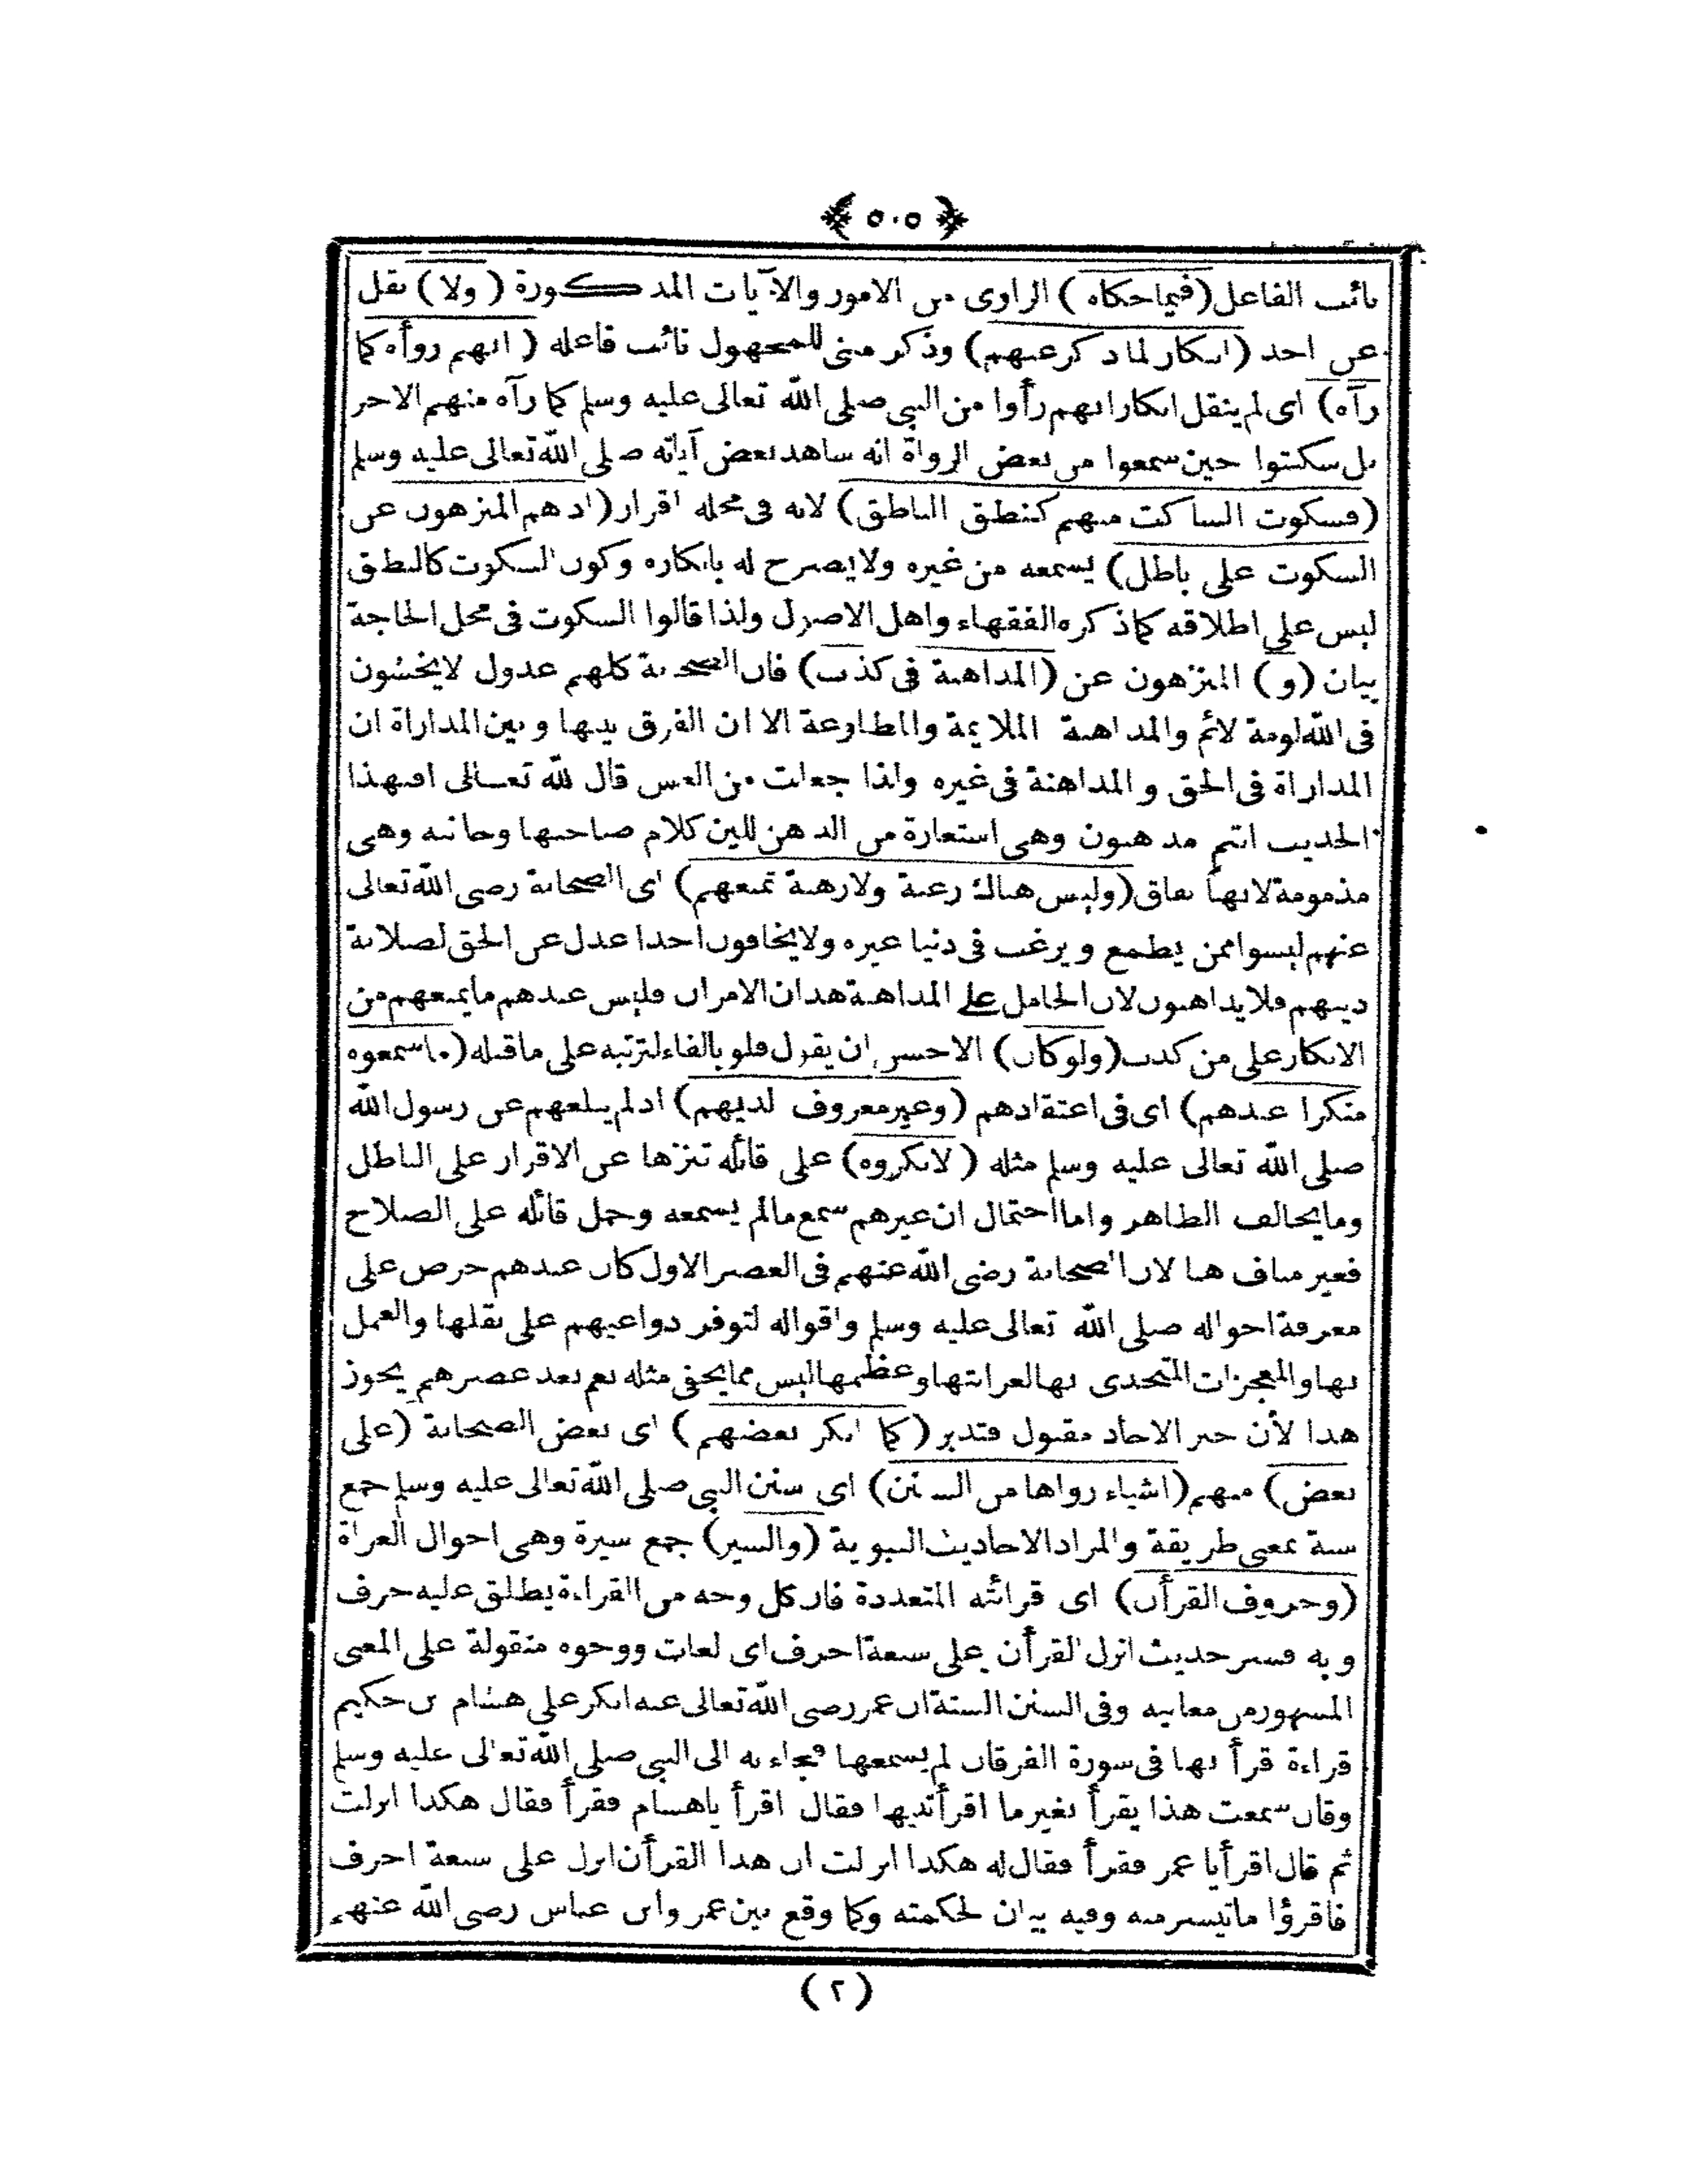 ﴿ ٥٠٥ ﴾
نائب الفاعل (فيما حكاه) الراوى من الامور والآيات المذكورة (ولا) نقل
عن احد (انكار لما ذكر عنهم) وذكر مبنى للمجهول نائب فاعله (انهم رواه كما
رآه) اى لم ينقل انكار انهم رأوا من النبى صلى الله تعالى عليه وسلم كما رآه منهم الآخر
بل سكتوا حين سمعوا من بعض الرواة انه شاهد بعض آياته صلى الله تعالى عليه وسلم
(فسكوت الساكت منهم كنطق الناطق) لانه فى محله اقرار (اذ هم المنزهون عن
السكوت على باطل) يسمعه من غيره ولا يصرح له بانكاره وكون السكوت كالنطق
ليس على اطلاقه كما ذكره الفقهاء واهل الاصول ولذا قالوا السكوت فى محل الحاجة
بيان (و) المنزهون عن (المداهنة فى كذب) فان الصحابة كلهم عدول لا يخشون
فى الله لومة لائم والمداهنة الملايمة والمطاوعة الا ان الفرق بينها وبين المداراة ان
المداراة فى الحق و المداهنة فى غيره ولذا جعلت من الغش قال الله تعالى افبهذا
الحديث انتم مدهنون وهى استعارة من الدهن للين كلام صاحبها وجانبه وهى
مذمومة لانها نفاق (وليس هناك رغبة ولا رهبة تمنعهم) اى الصحابة رضى الله تعالى
عنهم ليسوا ممن يطمع ويرغب فى دنيا غيره ولا يخافون احدا عدل عن الحق لصلابة
دينهم فلا يداهنون لان الحامل على المداهنة هذان الامران فليس عندهم ما يمنعهم من
الانكار على من كذب (ولو كان) الاحسن ان يقول فلو بالفاء لترتبه على ما قبله (ما سمعوه
منكرا عندهم) اى فى اعتقادهم (وغير معروف لديهم) اذ لم يبلغهم عن رسول الله
صلى الله تعالى عليه وسلم مثله (لانكروه) على قائله تنزها عن الاقرار على الباطل
وما يخالف الظاهر واما احتمال ان غيرهم سمع ما لم يسمعه وحمل قائله على الصلاح
فغير مناف هنا لان الصحابة رضى الله عنهم فى العصر الاول كان عندهم حرص على
معرفة احواله صلى الله تعالى عليه وسلم واقواله لتوفر دواعيهم على نقلها والعمل
بها والمعجزات المتحدى بها لغرابتها وعظمها ليس مما يخفى مثله نعم بعد عصرهم يجوز
هذا لأن خبر الآحاد مقبول فتدبر (كما انكر بعضهم) اى بعض الصحابة (على
بعض) منهم (اشياء رواها من السنن) اى سنن النبى صلى الله تعالى عليه وسلم جمع
سنة بمعنى طريقة والمراد الاحاديث النبوية (والسير) جمع سيرة وهى احوال الغزاة
(وحروف القرأن) اى قرائته المتعددة فان كل وجه من القراءة يطلق عليه حرف
وبه فسر حديث انزل القرأن على سبعة احرف اى لغات ووجوه منقولة على المعنى
المشهور من معانيه وفى السنن الستة ان عمر رضى الله تعالى عنه انكر على هشام بن حكيم
قراءة قرأ بها فى سورة الفرقان لم يسمعها فجاء به الى النبى صلى الله تعالى عليه وسلم
وقال سمعت هذا يقرأ بغير ما اقرأتنيها فقال اقرأ ياهشام فقرأ فقال هكذا انزلت
ثم قال اقرأ يا عمر فقرأ فقال له هكذا انزلت ان هذا القرأن انزل على سبعة احرف
فاقرؤا ما تيسر منه وفيه بيان لحكمته وكما وقع بين عمر وابن عباس رضى الله عنهم
(٢)